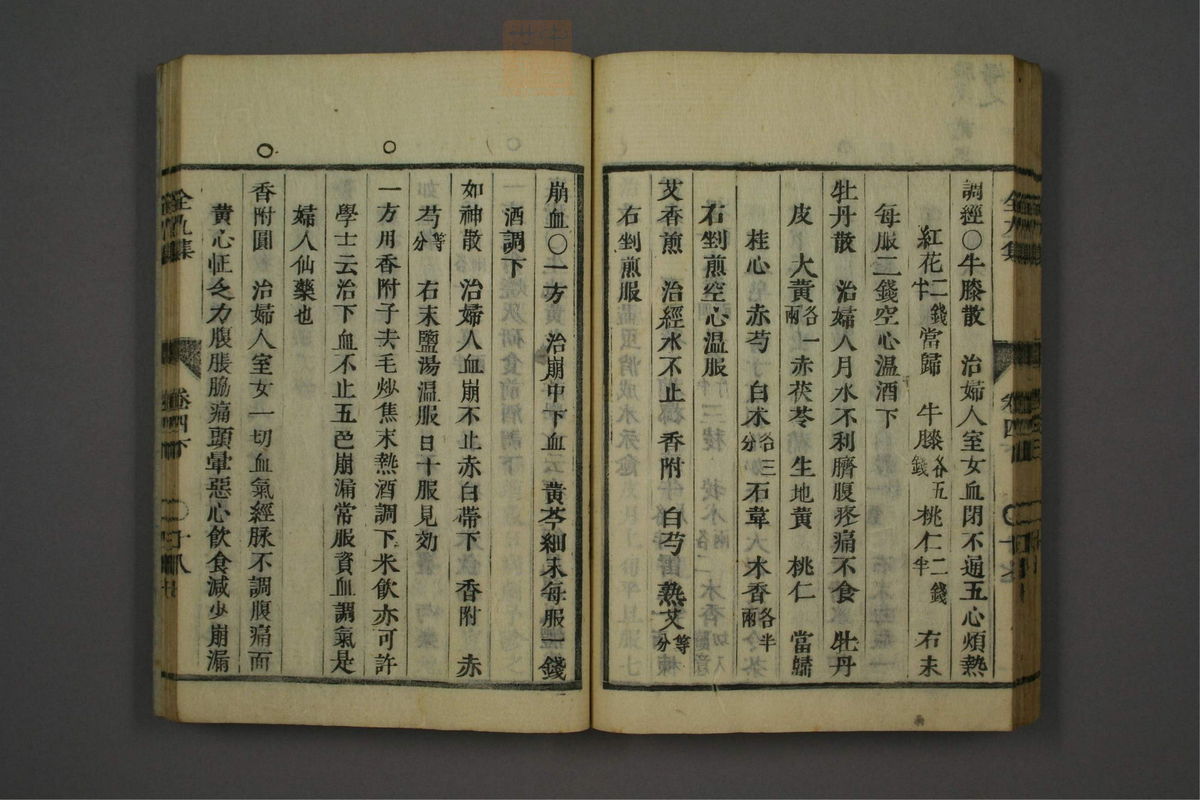 調經○牛膝散　治婦人室女血閉不通五心煩熱
紅花二錢半當歸　牛膝各五錢桃仁二錢半　右末
每服二錢空心温酒下
牡丹散　治婦人月水不利臍腹疼痛不食　牡丹
皮　大黃各一兩赤茯苓　生地黃　桃仁　當歸
桂心　赤芍　白朮各三分石韋　木香各半兩
右剉煎空心温服
艾香煎　治經水不止　香附　白芍　熟艾等分
右剉煎服
崩血○一方　治崩中下血　黃芩細末每服一錢
酒調下
如神散　治婦人血崩不止赤白帶下　香附　赤
芍等分　右末鹽湯温服日十服見効
一方用香附子去毛炒焦末熱酒調下米飲亦可許
學士云治下血不止五色崩漏常服資血調氣是
婦人仙藥也
香附圓　治婦人室女一切血氣經脉不調腹痛面
黃心怔乏力腹脹脇痛頭暈惡心飲食減少崩漏
全九集
卷四下
十八